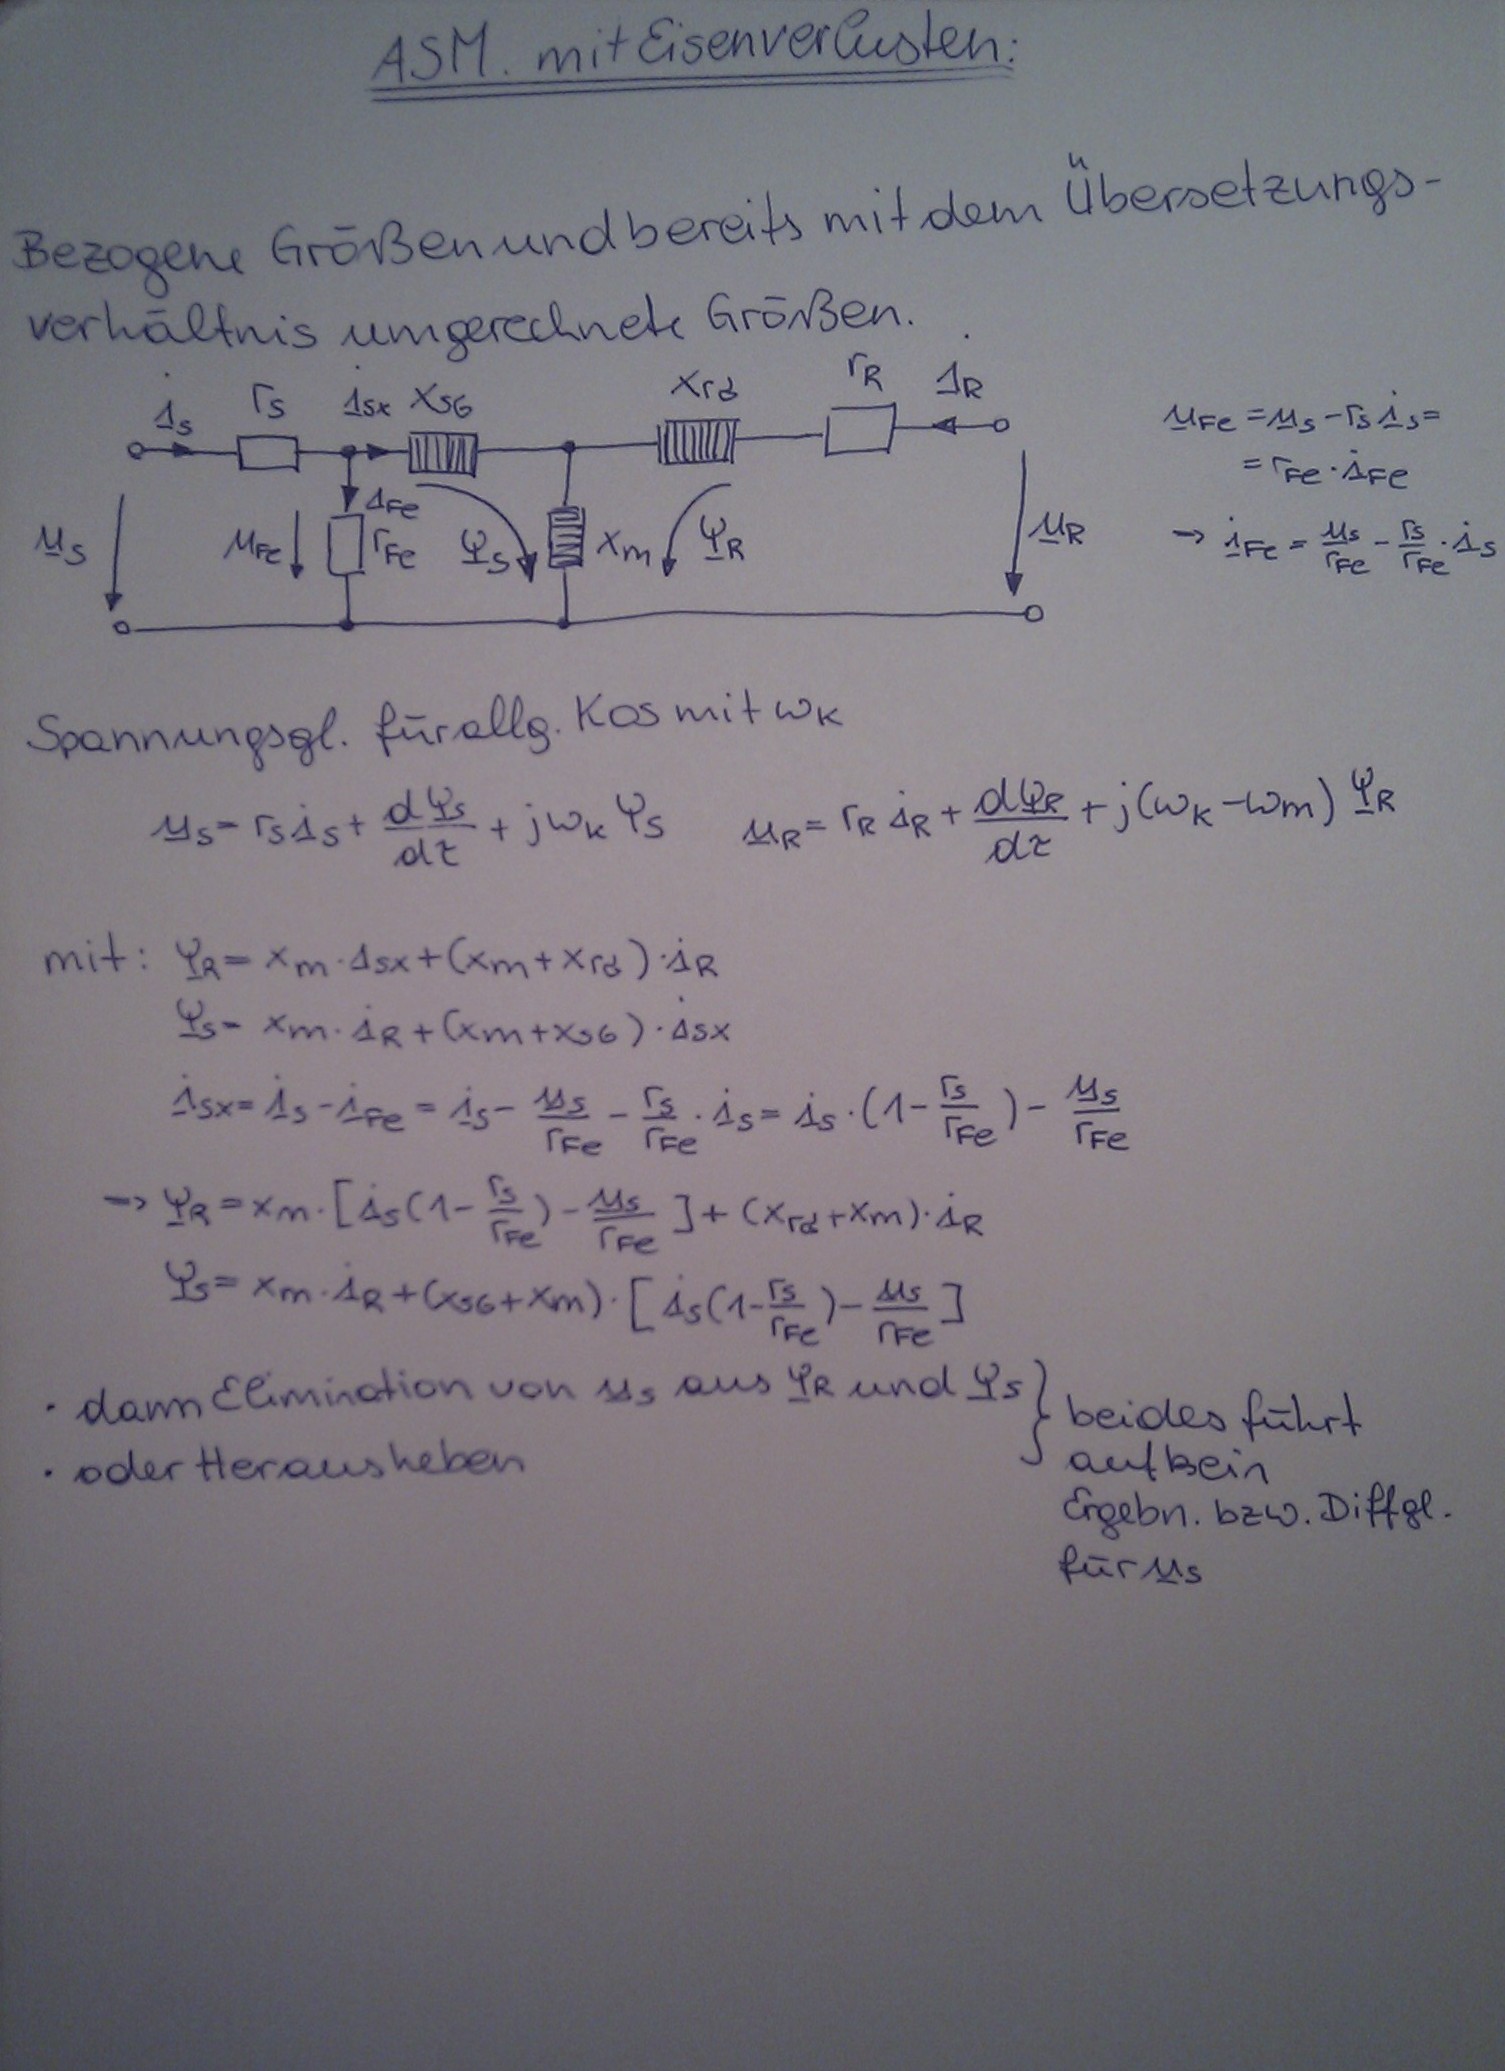 ASM. mit Eisenverlusten:
Bezogene Größen und bereits mit dem Übersetzungs-
verhältnis umgerechnete Größen.
i_S r_S i_Sx x_Sσ x_rσ r_R i_R
u_Fe = u_S - r_S i_S =
= r_Fe · i_Fe
→ i_Fe = u_S/r_Fe - r_S/r_Fe · i_S
u_S u_Fe i_Fe r_Fe Ψ_S x_m Ψ_R u_R
Spannungsgl. für allg. Kos mit ω_K
u_S = r_S i_S + dΨ_S/dτ + jω_K Ψ_S u_R = r_R i_R + dΨ_R/dτ + j(ω_K - ω_m) Ψ_R
mit: Ψ_R = x_m · i_Sx + (x_m + x_rσ) · i_R
Ψ_S = x_m · i_R + (x_m + x_Sσ) · i_Sx
i_Sx = i_S - i_Fe = i_S - u_S/r_Fe - r_S/r_Fe · i_S = i_S · (1 - r_S/r_Fe) - u_S/r_Fe
→ Ψ_R = x_m · [i_S (1 - r_S/r_Fe) - u_S/r_Fe] + (x_rσ + x_m) · i_R
Ψ_S = x_m · i_R + (x_Sσ + x_m) · [i_S (1 - r_S/r_Fe) - u_S/r_Fe]
· dann Elimination von u_S aus Ψ_R und Ψ_S
· oder Herausheben
} beides führt
auf kein
Ergebn. bzw. Diffgl.
für u_S